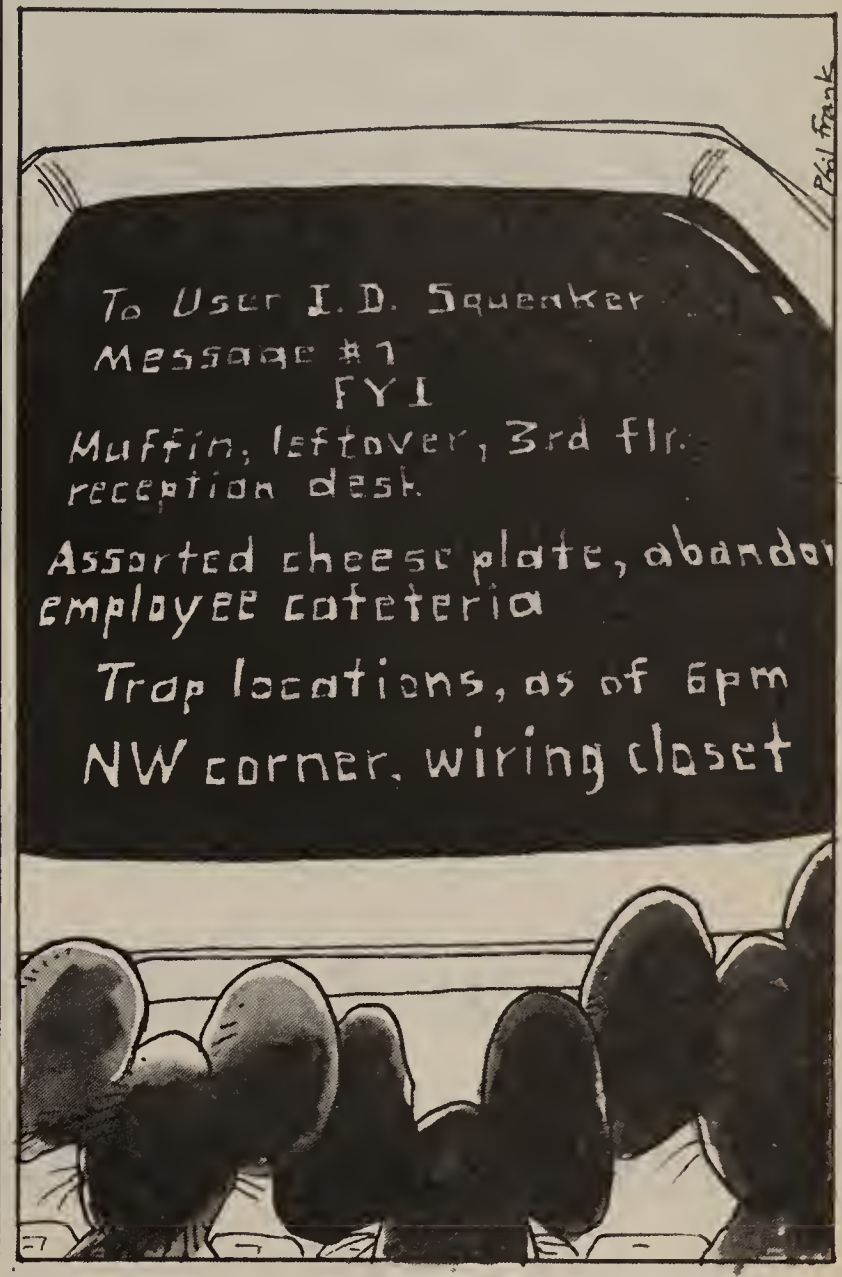 Phil Frank
To User I.D. Squeaker
Message #1
FYI
Muffin, leftover, 3rd flr.
reception desk
Assorted cheese plate, abandon
employee cafeteria
Trap locations, as of 6pm
NW corner, wiring closet